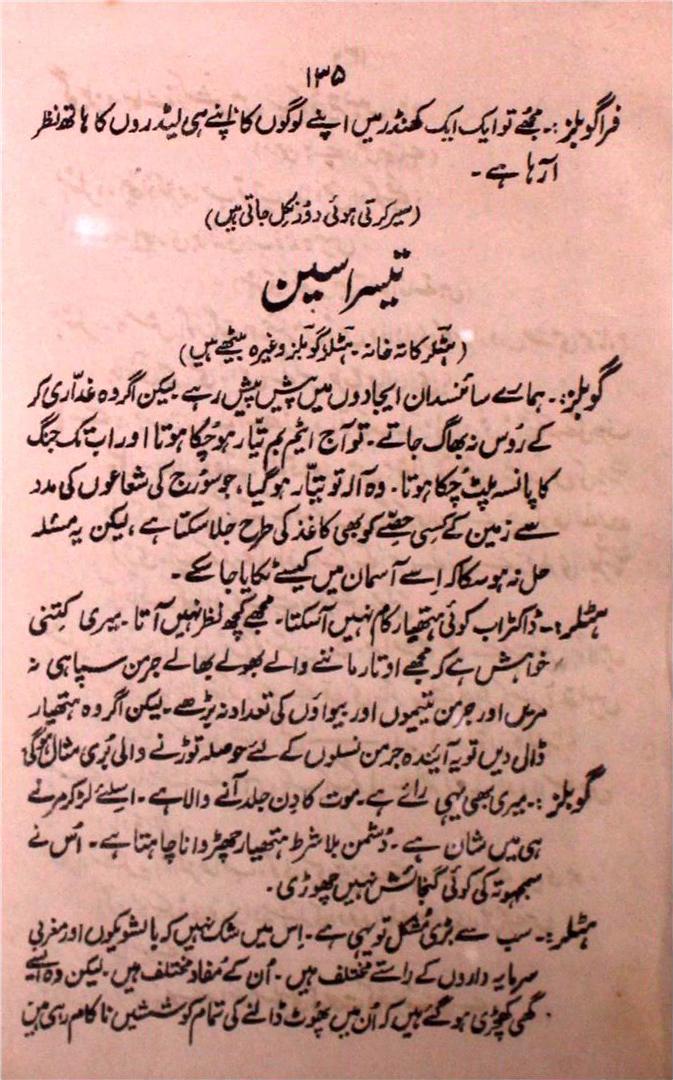 ۱۳۵
فراگوبلز:۔ مجھے تو ایک ایک کھنڈر میں اپنے لوگوں کا نہ اپنے ہی لیڈروں کا ہاتھ نظر
آرہا ہے۔
(سیر کرتی ہوئی دور نکل جاتی ہیں)
تیسرا سین
(ہٹلر کا تہ خانہ۔ ہٹلر گوبلز وغیرہ بیٹھے ہیں)
گوبلز:۔ ہمارے سائنسدان ایجادوں میں پیش پیش رہے۔ لیکن اگر وہ غدّاری کر
کے رُوس نہ بھاگ جاتے۔ تو آج ایٹم بم تیّار ہو چُکا ہوتا اور اب تک جنگ
کا پانسہ پلٹ چُکا ہوتا۔ وہ آلہ تو تیّار ہو گیا، جو سورج کی شعاعوں کی مدد
سے زمین کے کسی حصّے کو بھی کاغذ کی طرح جلا سکتا ہے، لیکن یہ مسئلہ
حل نہ ہو سکا کہ اِسے آسمان میں کیسے ٹکایا جا سکے۔
ہٹلر:۔ ڈاکٹر اب کوئی ہتھیار کام نہیں آ سکتا۔ مجھے کچھ نظر نہیں آتا۔ میری کتنی
خواہش ہے کہ مجھے اوتار ماننے والے بھولے بھالے جرمن سپاہی نہ
مریں اور جرمن یتیموں اور بیواؤں کی تعداد نہ بڑھے۔ لیکن اگر وہ ہتھیار
ڈال دیں تو یہ آئیندہ جرمن نسلوں کے لئے حوصلہ توڑنے والی بُری مثال ہوگی
گوبلز:۔ میری بھی یہی رائے ہے۔ موت کا دِن جلد آنے والا ہے۔ اسلئے لڑ کر مرنے
ہی میں شان ہے۔ دُشمن بلا شرط ہتھیار چھڑوانا چاہتا ہے۔ اُس نے
سمجھوتہ کی کوئی گنجائش نہیں چھوڑی۔
ہٹلر:۔ سب سے بڑی مُشکل تو یہی ہے۔ اِس میں شک نہیں کہ بالشویکوں اور مغربی
سرمایہ داروں کے راستے مختلف ہیں۔ اُن کے مُفاد مختلف ہیں۔ لیکن وہ ایسے
گھی کھچڑی ہو گئے ہیں کہ اُن میں پھوٹ ڈالنے کی تمام کوششیں ناکام رہی ہیں